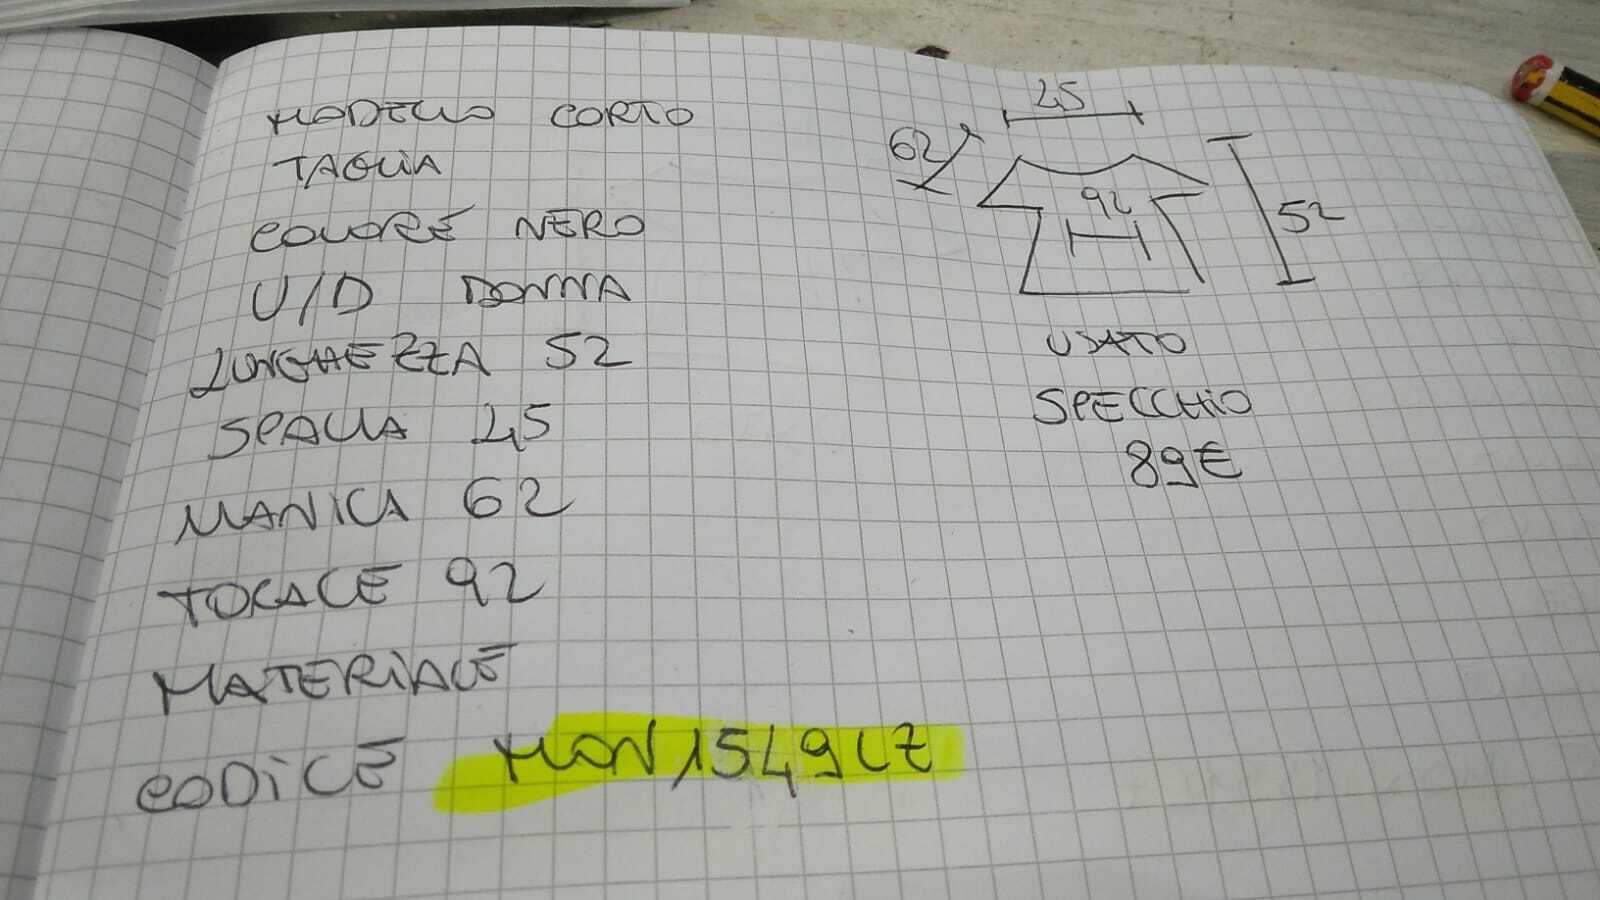 MODELLO CORTO
TAGLIA
COLORE NERO
U/D DONNA
LUNGHEZZA 52
SPALLA 45
MANICA 62
TORACE 92
MATERIALE
CODICE MON1549LZ
45
62
92
52
USATO
SPECCHIO
89€